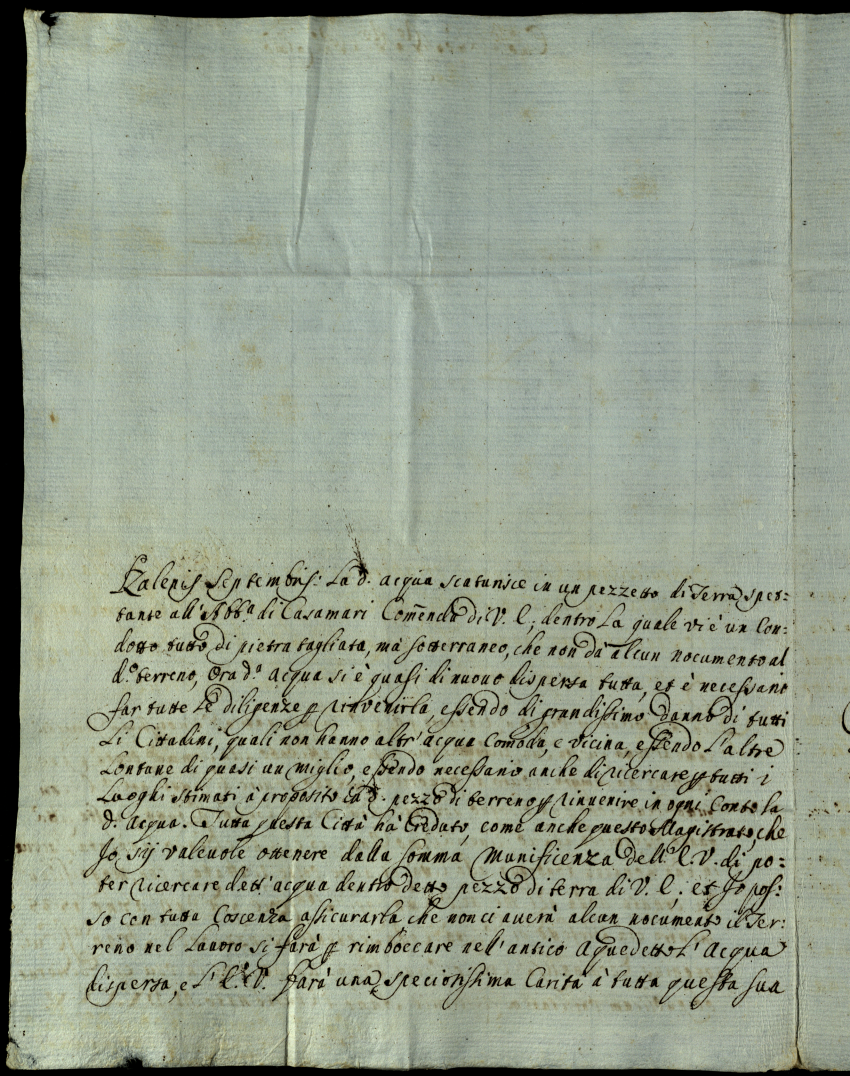 Kalenis Septembris: La d. acqua scaturisce in un pezzetto di Terra spet:
tante all'Abb.a di Casamari Comenda di V. E; dentro la quale vi è un Con:
dotto tutto di pietra tagliata, mà sotterraneo, che non dà alcun nocumento al
d.o terreno, Ora d.a acqua si è quasi di nuovo dispersa tutta, et è necessario
far tutte le diligenze p rinvenirla, essendo di grandissimo danno di tutti
li Cittadini, quali non hanno altr'acqua Comoda, e vicina, essendo l'altre
lontane di quasi un miglio, essendo necessario anche di ricercare p tutti i
luoghi stimati à proposito in d. pezzo di terreno p rinvenire in ogni Conto la
d. Acqua. Tutta questa Città hà Creduto, come anche questo Magistrato, che
Io sij valevole ottenere dalla somma Munificenza dell'E. V. di po:
ter ricercare dett'acqua dentro detto pezzo di terra di V. E; et Io pos:
so con tutta Coscenza assicurarla che non ci averà alcun nocumento il Ter:
reno nel lavoro si farà p rimboccare nell'antico Aquedetto l'Acqua
dispersa, e l'E. V. farà una speciosissima Carità à tutta questa sua